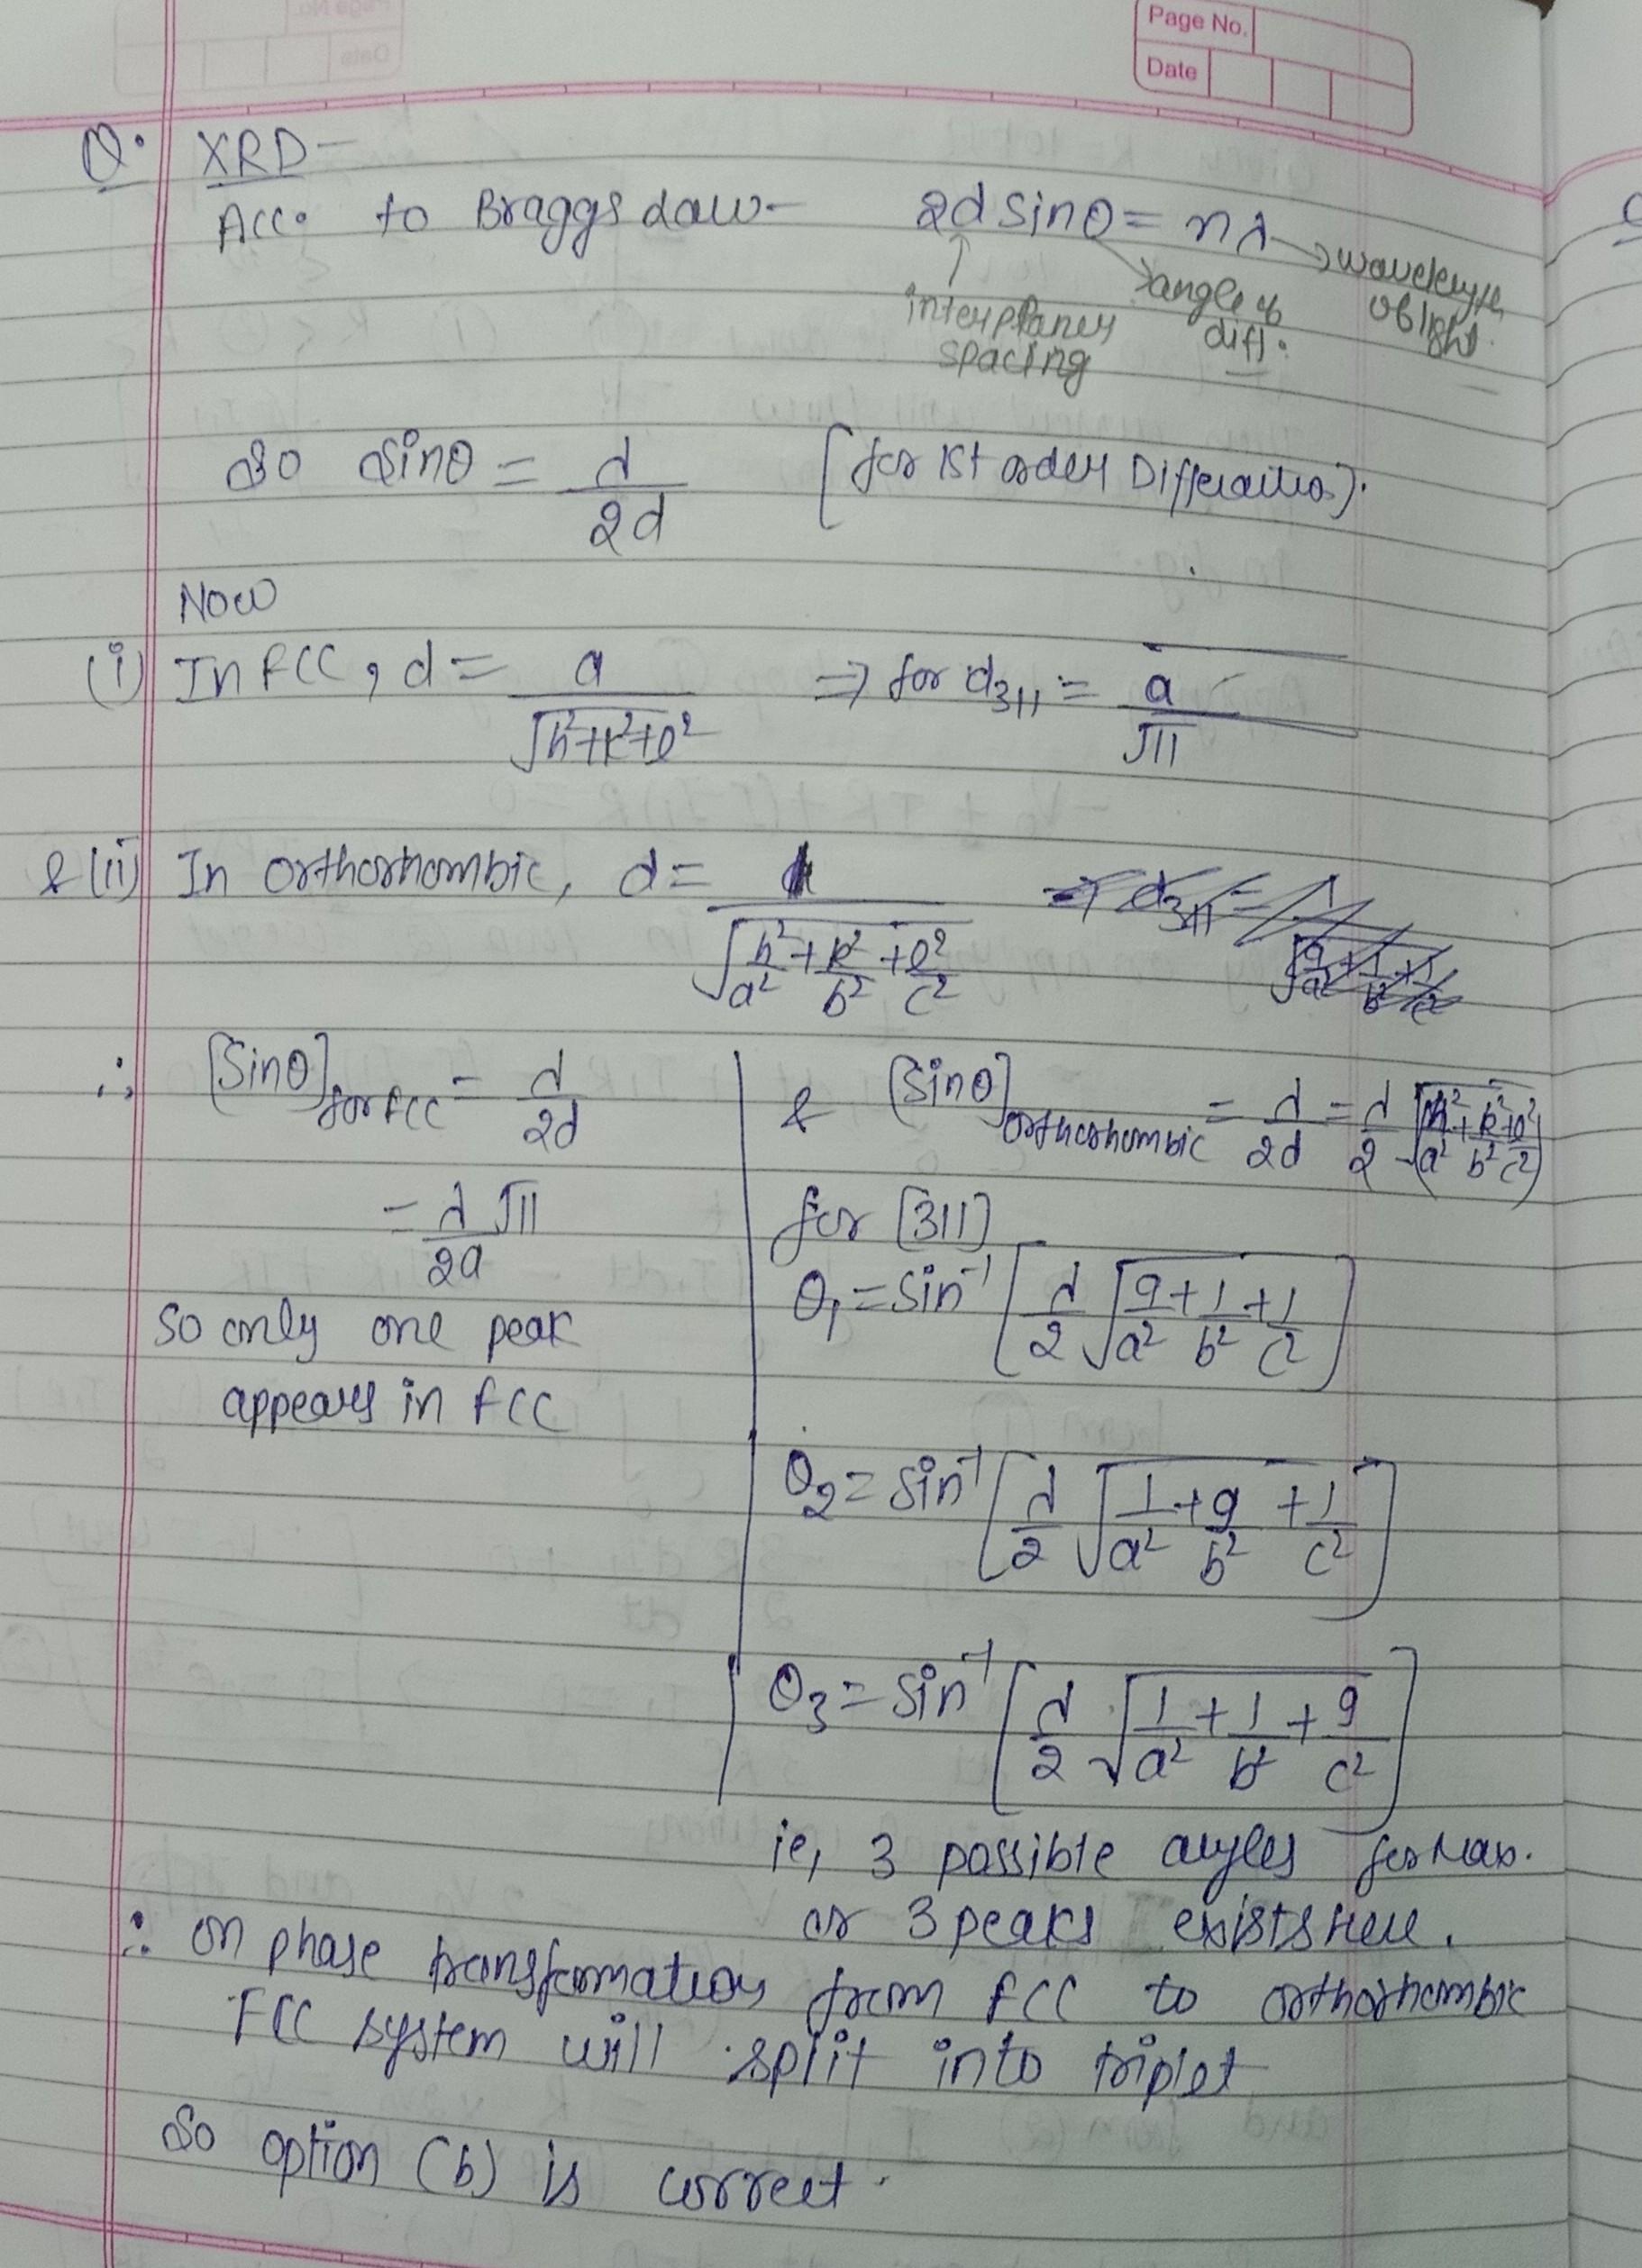 Page No.
Date
Q. XRD -
Acc. to Braggs Law - 2d sinθ = nλ
interplaner spacing
angle of diff.
wavelength of light.
So sinθ = λ/2d [for 1st order Differaction].
Now
(i) In FCC, d = a/√(h²+k²+l²) ⇒ for d₃₁₁ = a/√11
& (ii) In orthorhombic, d = 1/√(h²/a² + k²/b² + l²/c²)
∴ [Sinθ] for FCC = λ/2d
= λ/2a √11
So only one peak
appears in FCC
& [Sinθ] orthorhombic = λ/2d = λ/2 √(h²/a² + k²/b² + l²/c²)
for [311]
θ₁ = sin⁻¹ [λ/2 √(9/a² + 1/b² + 1/c²)]
θ₂ = sin⁻¹ [λ/2 √(1/a² + 9/b² + 1/c²)]
θ₃ = sin⁻¹ [λ/2 √(1/a² + 1/b² + 9/c²)]
ie, 3 possible angles for Max.
or 3 peaks exists here.
∴ on phase transformation from FCC to orthorhombic
FCC system will split into triplet
So option (b) is correct.